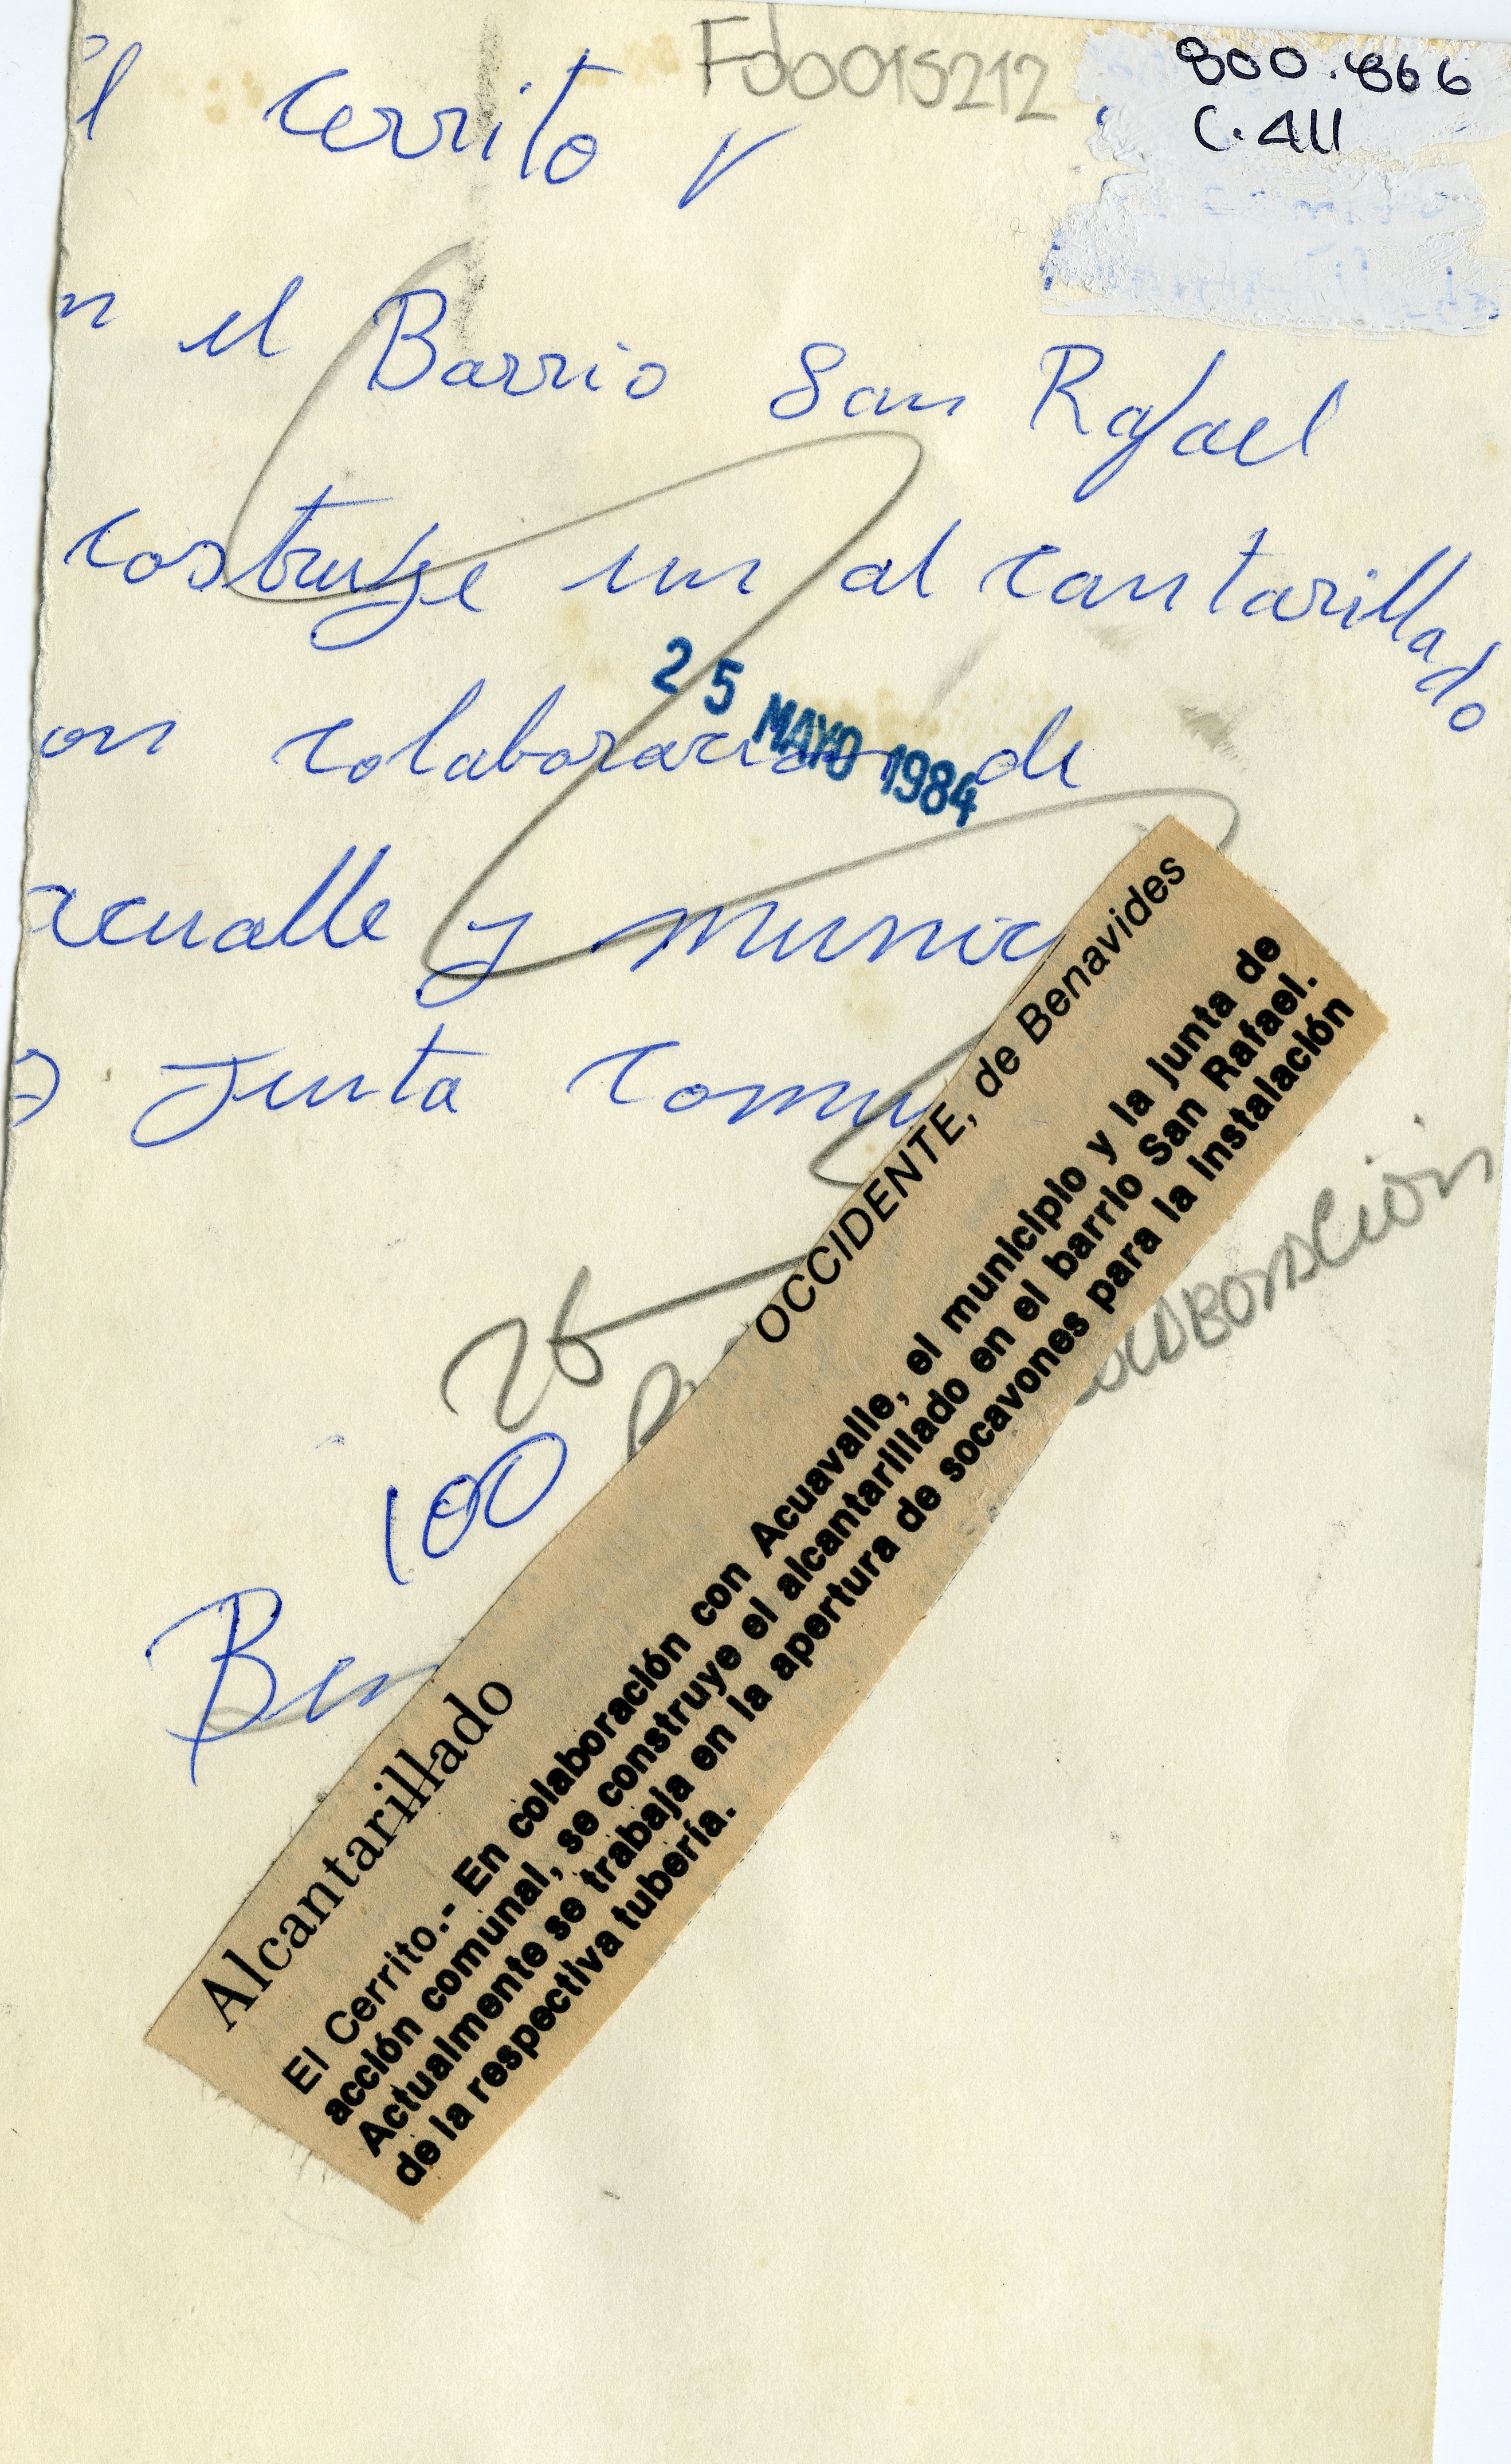 Fd0015212
800.866
C.411
El Cerrito V
n el Barrio San Rafael
costruye un alcantarillado
on colaboracion de
acualle y munic
Junta comu
25 MAYO 1984
26
colaboracion
100
Ben
OCCIDENTE, de Benavides
Alcantarillado
El Cerrito.- En colaboración con Acuavalle, el municipio y la junta de
acción comunal, se construye el alcantarillado en el barrio San Rafael.
Actualmente se trabaja en la apertura de socavones para la instalación
de la respectiva tubería.